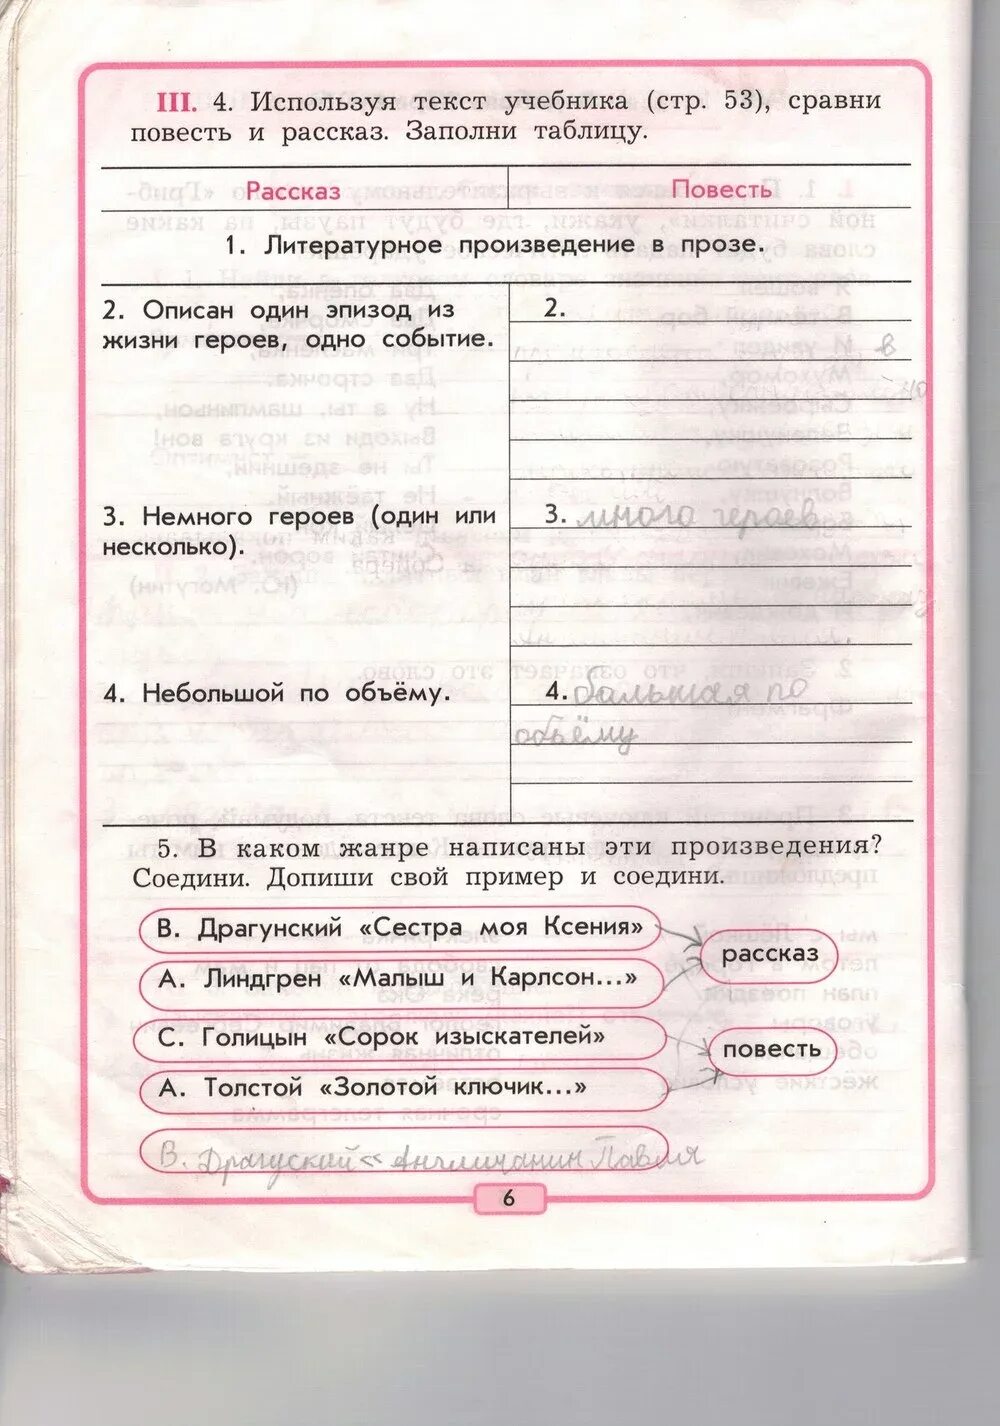 III. 4. Используя текст учебника (стр. 53), сравни
повесть и рассказ. Заполни таблицу.
Рассказ
Повесть
1. Литературное произведение в прозе.
2. Описан один эпизод из
жизни героев, одно событие.
2.
3. Немного героев (один или
несколько).
3. много героев
4. Небольшой по объёму.
4. большая по
объёму
5. В каком жанре написаны эти произведения?
Соедини. Допиши свой пример и соедини.
В. Драгунский «Сестра моя Ксения»
А. Линдгрен «Малыш и Карлсон...»
рассказ
С. Голицын «Сорок изыскателей»
повесть
А. Толстой «Золотой ключик...»
В. Драгуский «Англичанин Павля
6